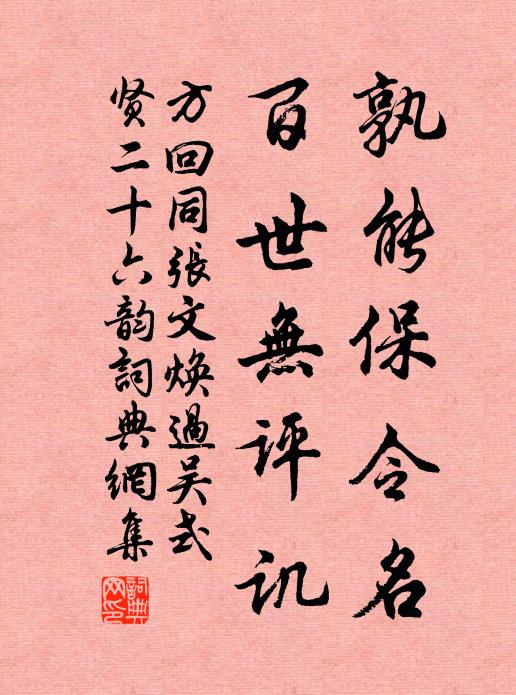 孰能保令名
百世無評訊
方回同張文焕過吴式
贤二十六韵詞典網集
詞典網印